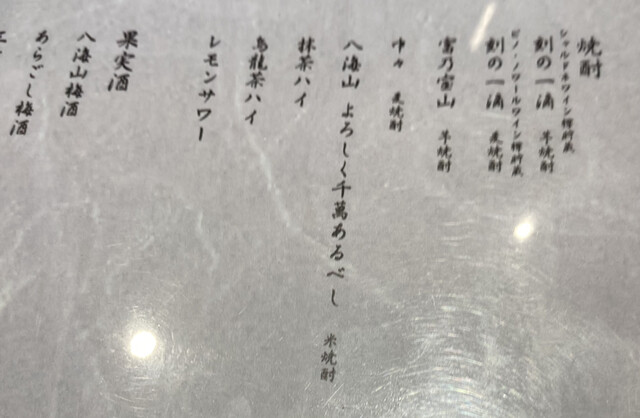 焼酎
シャルドネワイン樽貯蔵
刻の一滴 芋焼酎
ピノ・ノワールワイン樽貯蔵
刻の一滴 麦焼酎
富乃宝山 芋焼酎
中々 麦焼酎
八海山 よろしく千萬あるべし 米焼酎
抹茶ハイ
烏龍茶ハイ
レモンサワー
果実酒
八海山梅酒
あらごし梅酒